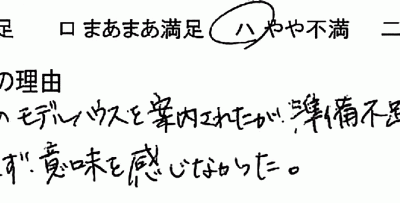 足 ロ まあまあ満足 ハ やや不満 二
の理由
のモデルハウスを案内されたが、準備不足
ず、意味を感じなかった。